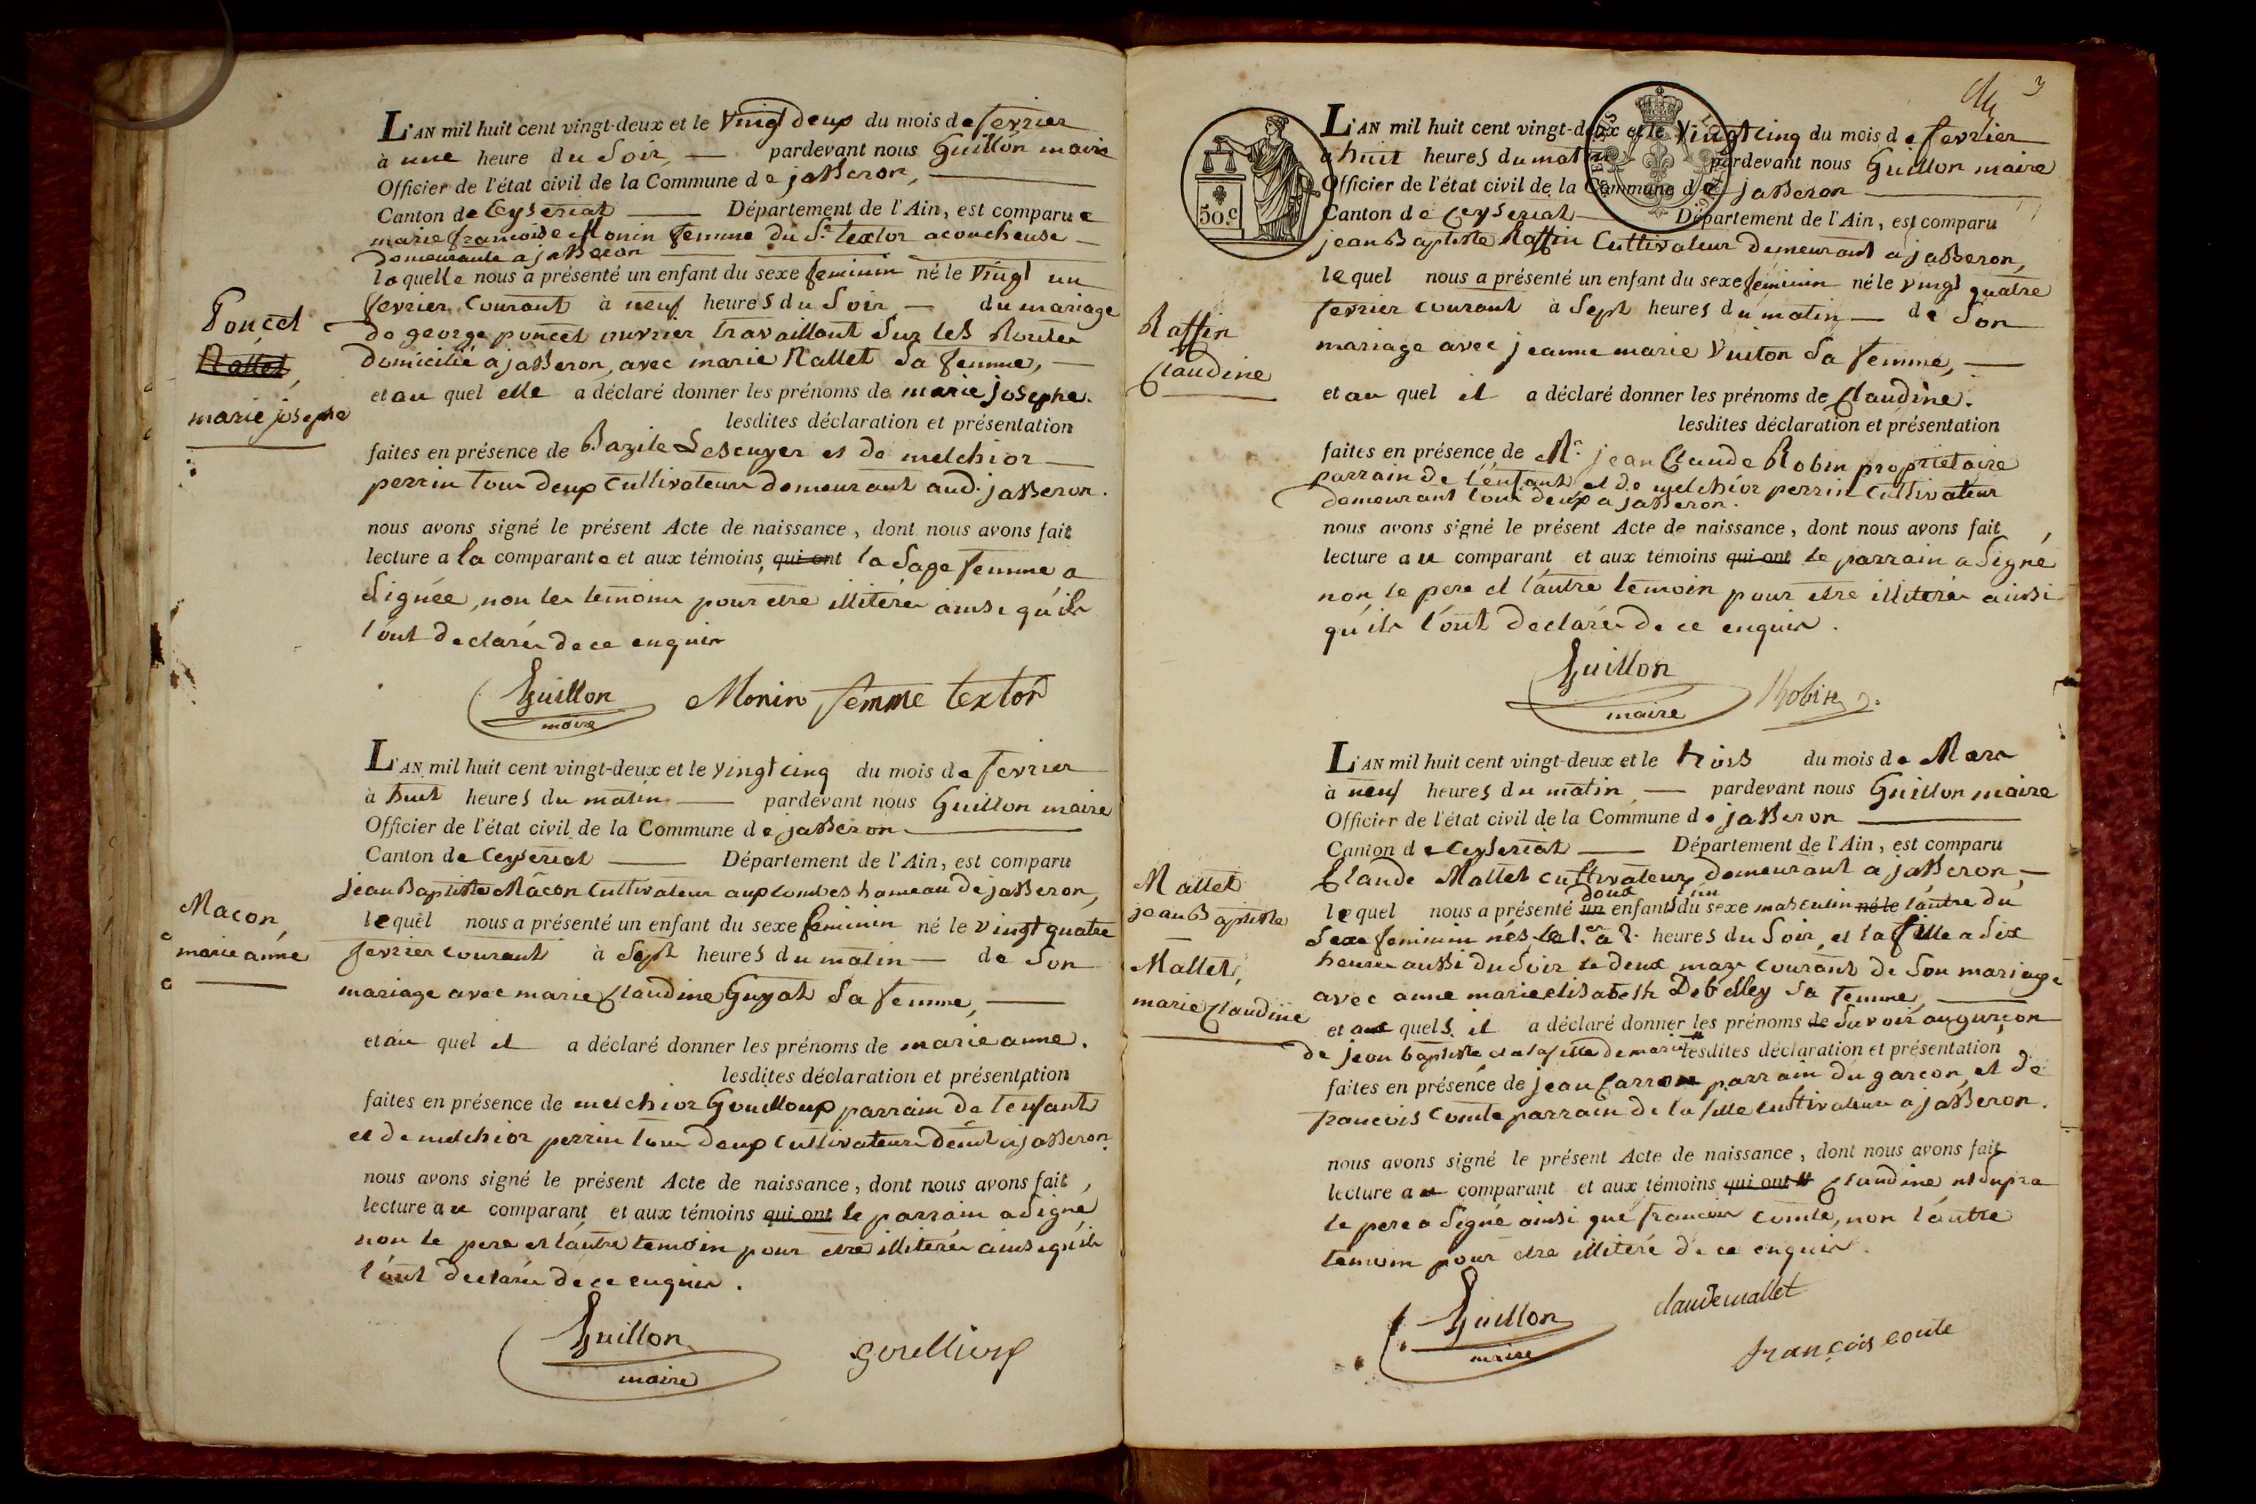 L'AN mil huit cent vingt-deux et le Vingt deux du mois de fevrier
à une heure du Soir, — pardevant nous Guillon maire
Officier de l'état civil de la Commune de jasseron,
Canton de Ceyseriat — Département de l'Ain, est comparue
marie francoise Monin femme du Sr. textor acoucheuse —
demeurante a jasseron
laquelle nous a présenté un enfant du sexe feminin né le Vingt un
fevrier courant à neuf heures du Soir — du mariage
de george poncet ouvrier travaillant Sur les Routes
domicilié a jasseron, avec marie Nallet Sa femme, —
et au quel elle a déclaré donner les prénoms de marie josephe.
lesdites déclaration et présentation
faites en présence de Bazile Lescuyer et de melchior —
perrin tous deux Cultivateurs demeurant aud. jasseron.
nous avons signé le présent Acte de naissance, dont nous avons fait
lecture a la comparante et aux témoins, qui ont la Sage femme a
Signée, non les temoins pour etre illiterés ainsi qu'ils
l'ont declarés de ce enquis
Guillon
maire
Monin femme textor
Poncet
Nallet,
marie josephe
L'AN mil huit cent vingt-deux et le vingt cinq du mois de fevrier
à huit heures du matin — pardevant nous Guillon maire
Officier de l'état civil de la Commune de jasseron
Canton de Ceyseriat — Département de l'Ain, est comparu
jean Baptiste Mâcon Cultivateur aux combes hameau de jasseron,
lequel nous a présenté un enfant du sexe feminin né le vingt quatre
fevrier courant à Sept heures du matin — de Son
mariage avec marie Claudine Guyat Sa femme, —
et au quel il a déclaré donner les prénoms de marie anne.
lesdites déclaration et présentation
faites en présence de melchior Gouilloux parrain de l'enfant
et de melchior perrin tous deux Cultivateurs demt. a jasseron.
nous avons signé le présent Acte de naissance, dont nous avons fait,
lecture au comparant et aux témoins qui ont le parrain a Signé
non le pere et l'autre temoin pour etre illiterés ainsi qu'ils
l'ont declarés de ce enquis.
Guillon
maire
Macon,
marie anne
3
50.C
L'AN mil huit cent vingt-deux et le Vingt cinq du mois de fevrier
à huit heures du matin pardevant nous Guillon maire
Officier de l'état civil de la Commune de jasseron
Canton de Ceyseriat — Département de l'Ain, est comparu
jean Baptiste Raffin Cultivateur demeurant a jasseron,
lequel nous a présenté un enfant du sexe féminin né le vingt quatre
fevrier courant à Sept heures du matin — de Son
mariage avec jeanne marie Vuiton Sa femme, —
et au quel il a déclaré donner les prénoms de Claudine.
lesdites déclaration et présentation
faites en présence de Mr. jean Claude Robin proprietaire
parrain de l'enfant et de melchior perrin Cultivateur
demeurant tous deux a jasseron.
nous avons signé le présent Acte de naissance, dont nous avons fait,
lecture au comparant et aux témoins qui ont le parrain a Signé
non le pere et l'autre temoin pour etre illiterés ainsi
qu'ils l'ont declarés de ce enquis.
Guillon
maire
Robin
Raffin
Claudine
L'AN mil huit cent vingt-deux et le trois du mois de Mars
à neuf heures du matin — pardevant nous Guillon maire
Officier de l'état civil de la Commune de jasseron
Canton de Ceyseriat — Département de l'Ain, est comparu
Claude Mallet cultivateur demeurant a jasseron, —
deux l'un
lequel nous a présenté un enfants du sexe masculin né le l'autre du
Sexe feminin nés, le 1.er a 2. heures du Soir, et la fille a Six
heures aussi du Soir le deux mars courant de Son mariage
avec anne marie elisabeth Debelley Sa femme,
et aux quels il a déclaré donner les prénoms de Savoir au garçon
de jean baptiste et a la fille de marie lesdites déclaration et présentation
faites en présence de jean Carron parrain du garcon, et de
francois Comte parrain de la fille cultivateurs a jasseron.
nous avons signé le présent Acte de naissance, dont nous avons fait
lecture au comparant et aux témoins qui ont # Claudine ut Supra
le pere a Signé ainsi que francois Comte, non l'autre
temoin pour etre illiteré de ce enquis.
Guillon
maire
claude mallet
françois conte
Mallet
jean Baptiste
Mallet,
marie Claudine